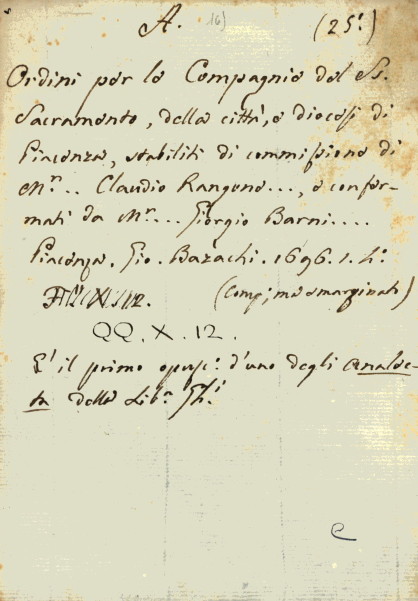 A. 16) (25.)
Ordini per le Compagnie del Ss.
Sacramento, della città, e diocesi di
Piacenza, stabiliti di commissione di
M.r.. Claudio Rangone..., e confer-
mati da M.r... Giorgio Barni....
Piacenza. Gio. Bazachi. 1696. 1. h.
(Comp; ma smarginati)
QQ. X. 12.
E' il primo opusc: d'uno degli Analec-
ta della Lib.a
e